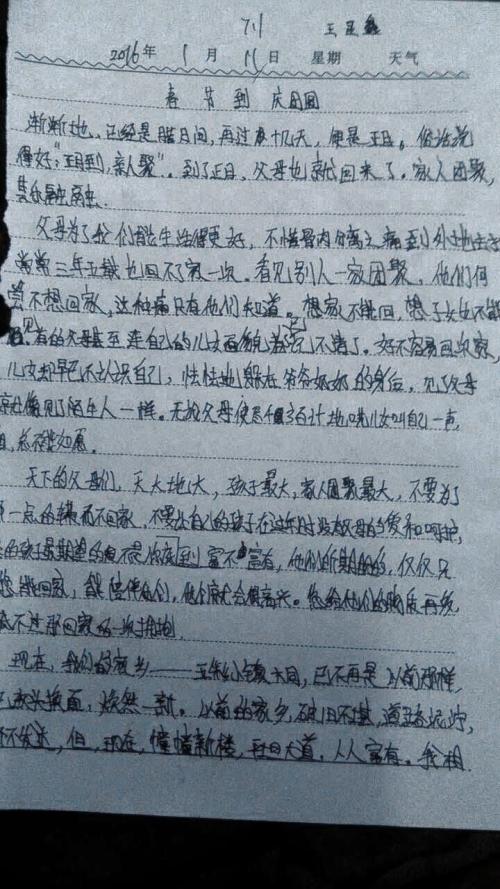 711
2016年 1月 11日 星期 天气
春节到 庆团圆
渐渐地,已经是腊月间,再过十几天,便是正月。俗话说
得好:"正月到,亲人聚"。到了正月,父母也就回来了。家人团聚,
其乐融融。
父母为了我们能生活得更好,不惜骨肉分离之痛到外地生活
常常三年五载也回不了家一次。看见别人一家团聚,他们何
尝不想回家,这种痛只有他们知道。想家不能回,想子女也不能
见。有的父母甚至连自己的儿女面貌都记不清了。好不容易回次家,
儿女却早已不认识自己,怯怯地躲在爷爷奶奶的身后,见了父母
就像见了陌生人一样。无论父母使尽千方百计地哄儿女叫自己一声,
但总不能如愿。
天下的父母们,天大地大,孩子最大,家人团聚最大,不要为了
一点的钱而不回家,不要让自己的孩子在过年时没有父母的爱和呵护,
的孩子最期望的不是家庭到富不富有,他们所期盼的,仅仅只
您能回家,能陪伴他们,他们就会很高兴。您给他们的物质再
不过那回家的一次拥抱
现在,我们的家乡——玉米大同,已不再是以前那样,
改头换面,焕然一新。以前的家乡,破旧不堪,道路泥泞,
不发达,但,现在,幢幢新楼,大道,人人富有。我相